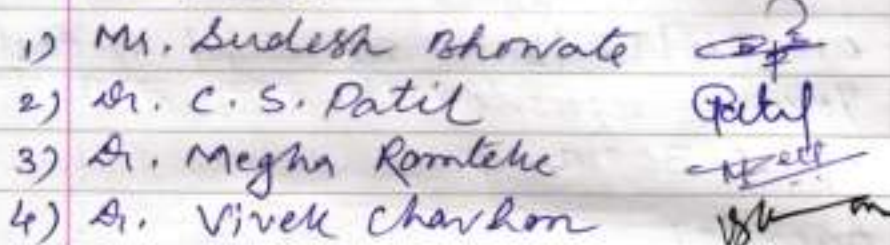 1) Mr. Sudesh Bhowate
2) Dr. C. S. Patil Patil
3) Dr. Megha Ramteke
4) Dr. Vivek Chavhan